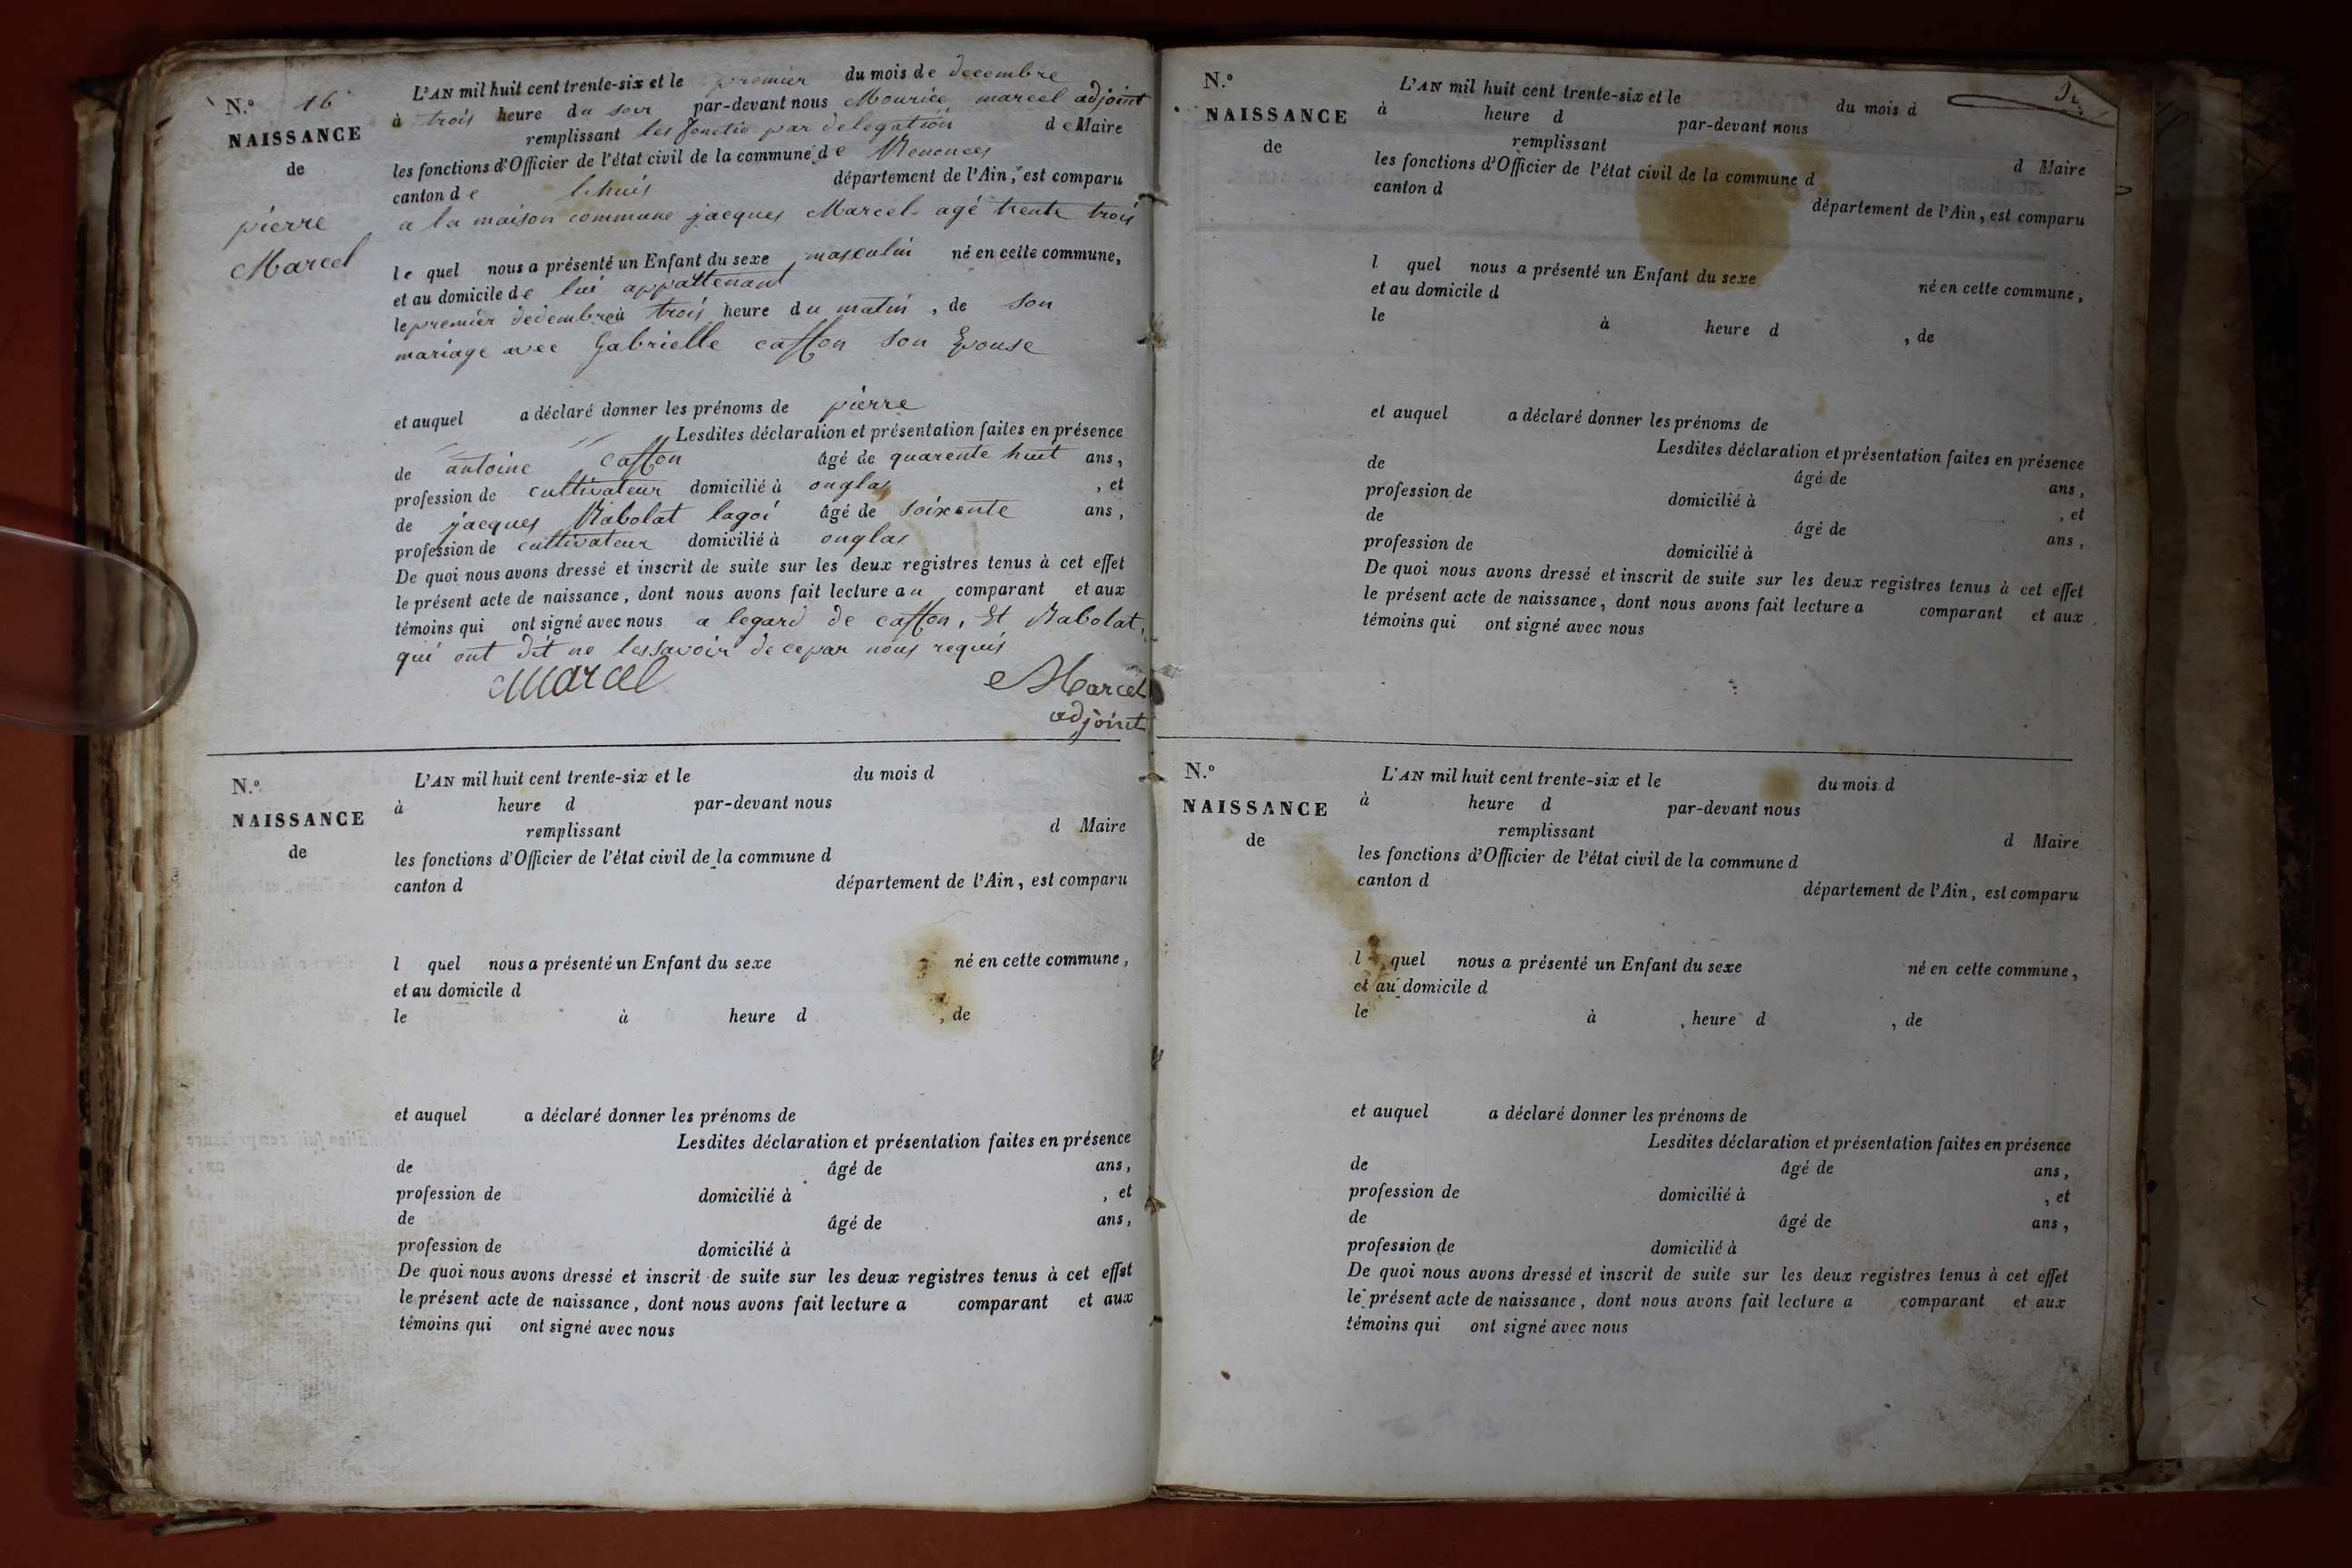 N.° 16
NAISSANCE
de
pierre
Marcel
L'AN mil huit cent trente-six et le premier du mois de decembre
à trois heure du soir par-devant nous Mourice marcel adjoint
remplissant les fonctio par delegation de Maire
les fonctions d'Officier de l'état civil de la commune de
canton de lhuis département de l'Ain, est comparu
a la maison commune jacques Marcel agé trente trois
le quel nous a présenté un Enfant du sexe masculin né en cette commune,
et au domicile de lui appattenant
le premier decembre à trois heure du matin, de son
mariage avec Gabrielle caston son Epouse
et auquel a déclaré donner les prénoms de pierre
Lesdites déclaration et présentation faites en présence
de antoine caston âgé de quarente huit ans,
profession de cultivateur domicilié à onglas, et
de jacques Rabolat lagoi âgé de soixente ans,
profession de cultivateur domicilié à onglas
De quoi nous avons dressé et inscrit de suite sur les deux registres tenus à cet effet
le présent acte de naissance, dont nous avons fait lecture au comparant et aux
témoins qui ont signé avec nous a legard de caston, Et Rabolat,
qui ont dit ne lessavoir de ce par nous requis
Marcel Marcel
adjoint
N.°
NAISSANCE
de
L'AN mil huit cent trente-six et le du mois d
à heure d par-devant nous
remplissant d Maire
les fonctions d'Officier de l'état civil de la commune d
canton d département de l'Ain, est comparu
l quel nous a présenté un Enfant du sexe né en cette commune,
et au domicile d
le à heure d , de
et auquel a déclaré donner les prénoms de
Lesdites déclaration et présentation faites en présence
de âgé de ans,
profession de domicilié à , et
de âgé de ans,
profession de domicilié à
De quoi nous avons dressé et inscrit de suite sur les deux registres tenus à cet effet
le présent acte de naissance, dont nous avons fait lecture a comparant et aux
témoins qui ont signé avec nous
N.°
NAISSANCE
de
L'AN mil huit cent trente-six et le du mois d
à heure d par-devant nous
remplissant d Maire
les fonctions d'Officier de l'état civil de la commune d
canton d département de l'Ain, est comparu
l quel nous a présenté un Enfant du sexe né en cette commune,
et au domicile d
le à heure d , de
et auquel a déclaré donner les prénoms de
Lesdites déclaration et présentation faites en présence
de âgé de ans,
profession de domicilié à , et
de âgé de ans,
profession de domicilié à
De quoi nous avons dressé et inscrit de suite sur les deux registres tenus à cet effet
le présent acte de naissance, dont nous avons fait lecture a comparant et aux
témoins qui ont signé avec nous
N.°
NAISSANCE
de
L'AN mil huit cent trente-six et le du mois d
à heure d par-devant nous
remplissant d Maire
les fonctions d'Officier de l'état civil de la commune d
canton d département de l'Ain, est comparu
l quel nous a présenté un Enfant du sexe né en cette commune,
et au domicile d
le à heure d , de
et auquel a déclaré donner les prénoms de
Lesdites déclaration et présentation faites en présence
de âgé de ans,
profession de domicilié à , et
de âgé de ans,
profession de domicilié à
De quoi nous avons dressé et inscrit de suite sur les deux registres tenus à cet effet
le présent acte de naissance, dont nous avons fait lecture a comparant et aux
témoins qui ont signé avec nous